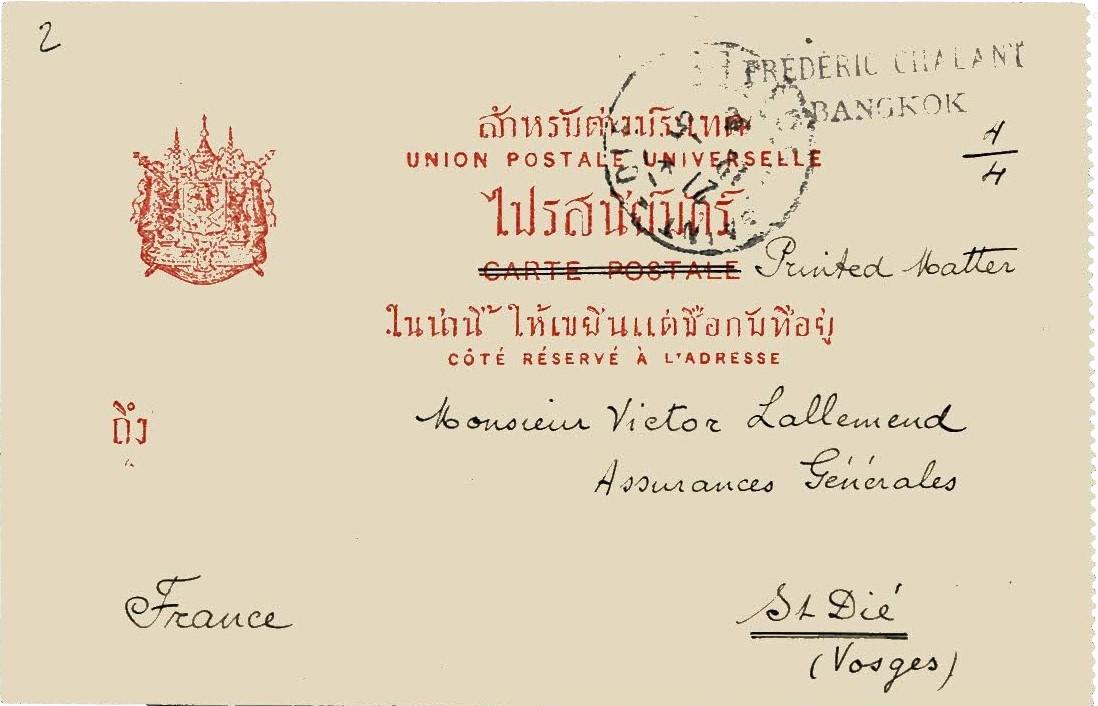 2
FRÉDÉRIC CHALANT
BANGKOK
สำหรับต่างประเทศ
UNION POSTALE UNIVERSELLE
4
4
ไปรสนียบัตร์
CARTE POSTALE Printed Matter
ในน่านี้ ให้เขียนแต่ชื่อกับที่อยู่
CÔTÉ RÉSERVÉ À L'ADRESSE
ถึง
Monsieur Victor Lallemend
Assurances Générales
France
St Dié
(Vosges)